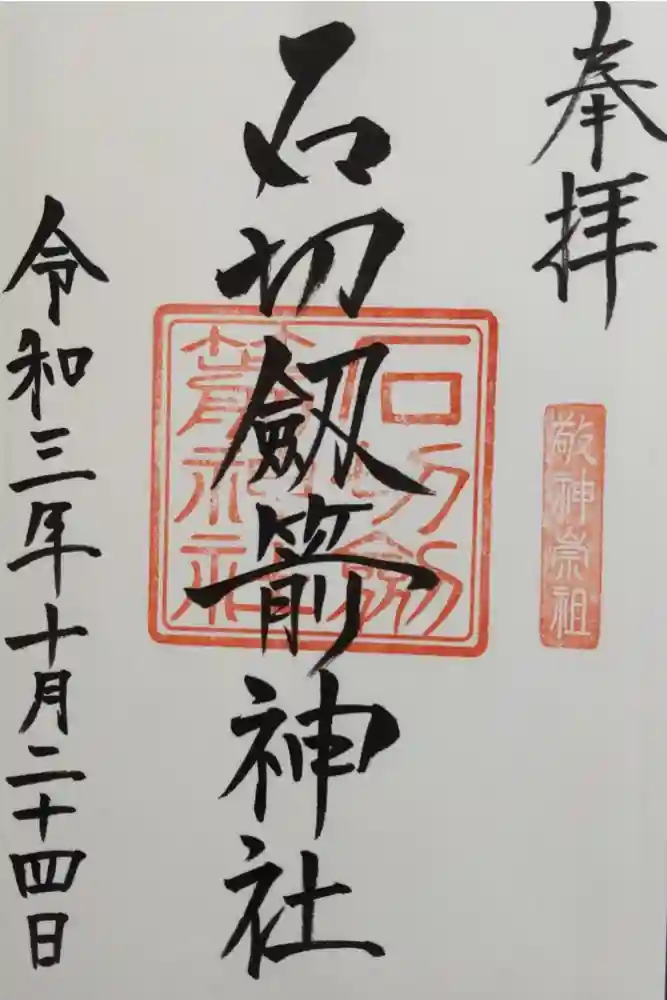 奉拝
敬神崇祖
石切劔箭神社
石切劔箭神社
令和三年十月二十四日